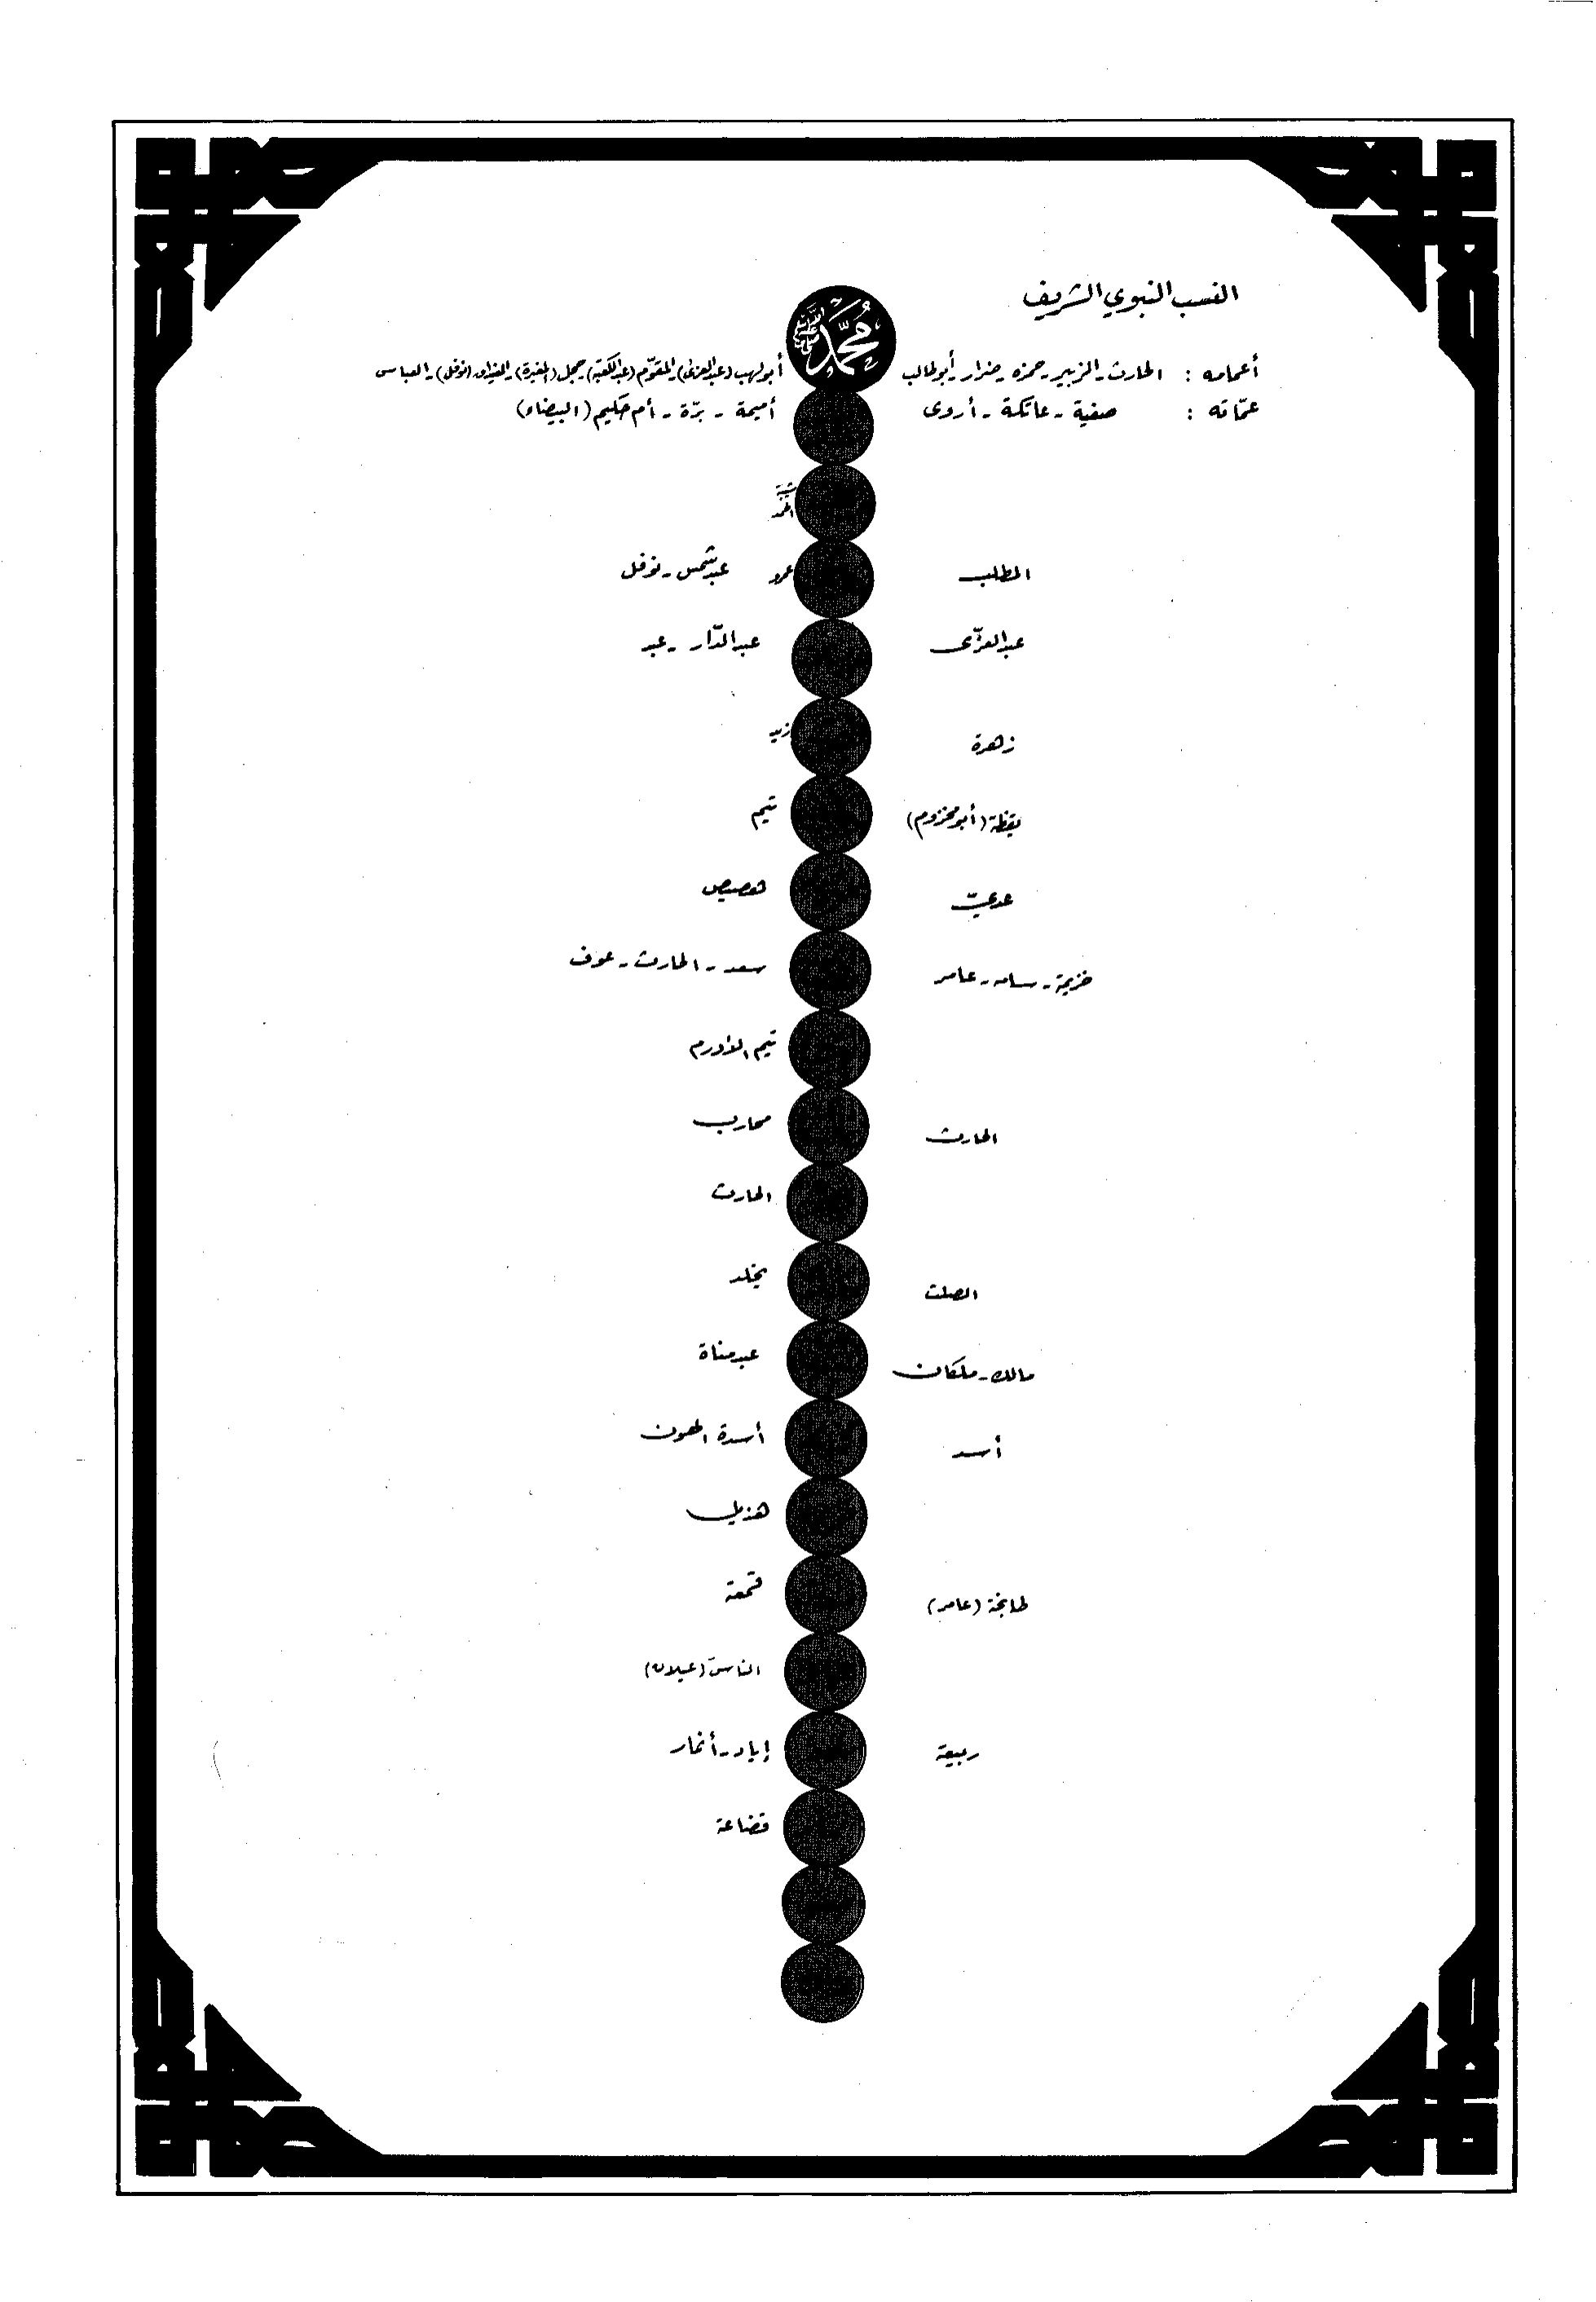 النسب النبوي الشريف
محمد
أعمامه : الحارث - الزبير - حمزه - ضرار - أبوطالب أبولهب (عبدالعزى) - المقوّم (عبدالكعبة) - حجل (المغيرة) - الغيداق (نوفل) - العباس
عمّاته : صفية - عاتكة - أروى أميمة - برّة - أم حكيم (البيضاء)
شيبة
الحمد
المطلب عمرو عبدشمس - نوفل
عبدالعزّى عبدالدّار - عبد
زهرة زيد
يقظة (أبومخزوم) تيم
عديّ هصيص
خزيمة - سامه - عامر سعد - الحارث - عوف
تيم الأدرم
الحارث محارب
الحارث
الصلت يخلد
مالك - ملكان عبدمناة
أسد أسدة الهون
هذيل
طابخة (عامر) قمعة
الناس (عيلان)
ربيعة إياد - أنمار
قضاعة